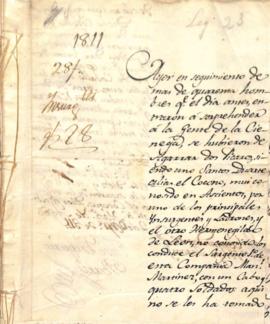 Leg 23
1811
28/.
528
Ayer en seguimiento de
mas de quarenta hom-
bres qe. el dia antes en-
traron a sorprehender
a la Gente de la Cie-
nega, se hubieron de
Agarrar dos Vivos, si-
endo uno Santos Duarte
el Cocono, mui co-
nosido en Asientos, por
uno de los principales
Insurgentes y Ladrones, y
el otro Hermenegildo
de Leon, no conosido;
conduce el Sargento de
esta Compañia Man.
Martinez, con un Cabo y
quatro Soldados, a qui
no se los ha tomado